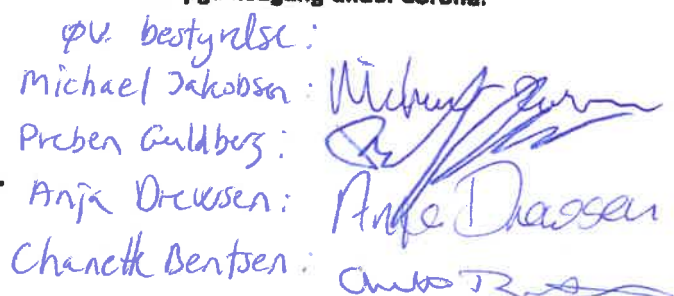 under Corona.
øv. bestyrelse:
Michael Jakobsen:
Preben Guldberg:
Anja Drewsen: Anja Drewsen
Chanett Bentsen: